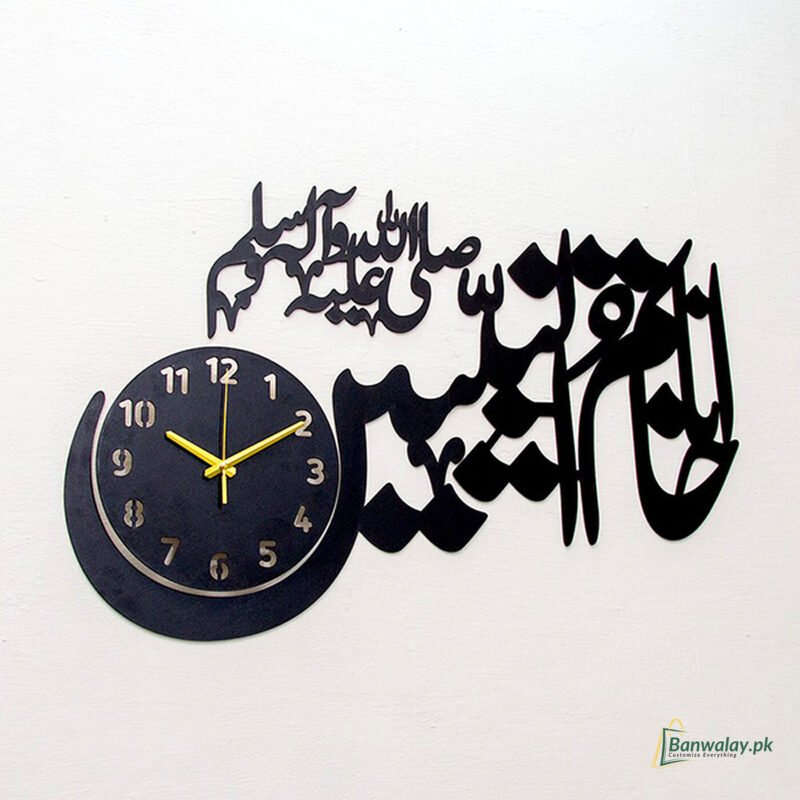 صلی اللہ علیہ وآلہ وسلم
خاتم النبیین
12
11 1
10 2
9 3
8 4
7 5
6
Banwalay.pk
Customize Everything